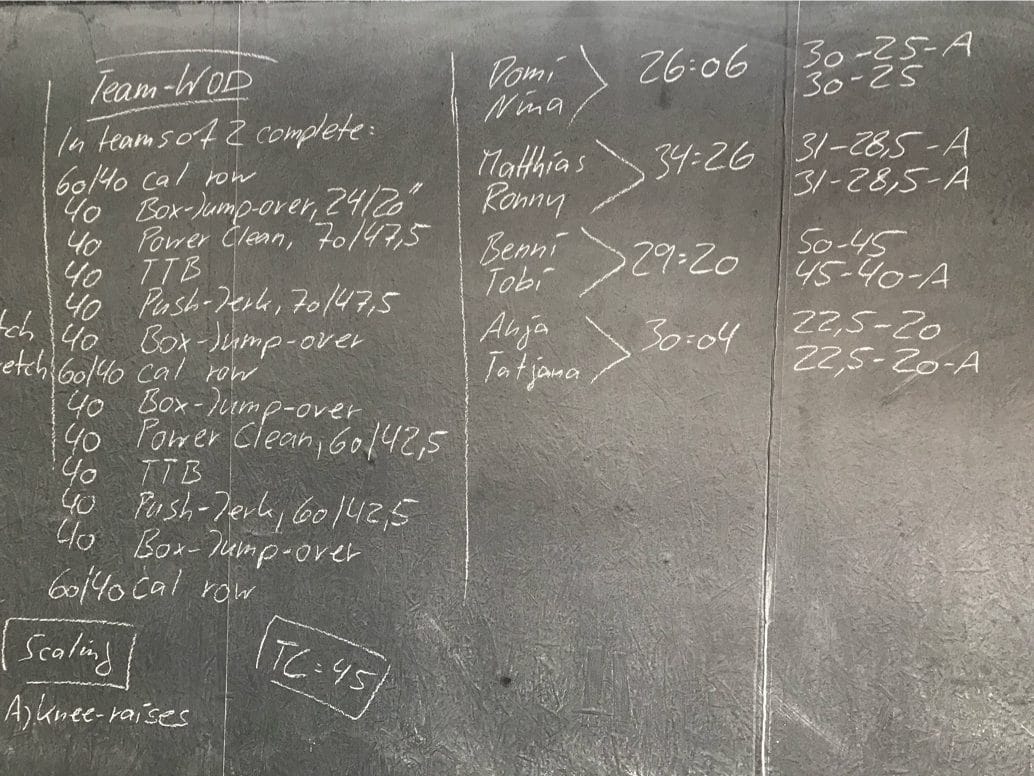 Team-WOD
In teams of 2 complete:
60/40 cal row
40 Box-Jump-over, 24/20"
40 Power Clean, 70/47,5
40 TTB
40 Push-Jerk, 70/47,5
40 Box-Jump-over
60/40 cal row
40 Box-Jump-over
40 Power Clean, 60/42,5
40 TTB
40 Push-Jerk, 60/42,5
40 Box-Jump-over
60/40 cal row
Scaling
A) knee-raises
TC = 45
Domi
Nina
26:06
30-25-A
30-25
Matthias
Ronny
34:26
31-28,5-A
31-28,5-A
Benni
Tobi
29:20
50-45
45-40-A
Anja
Tatjana
30:04
22,5-20
22,5-20-A